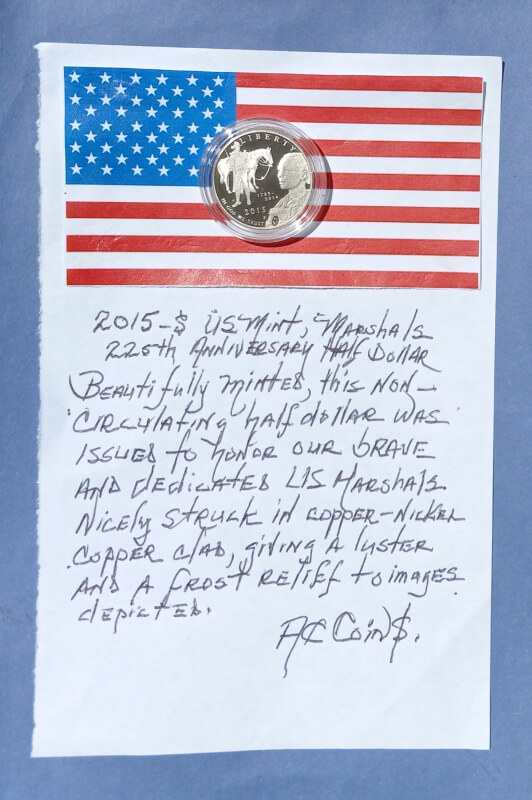 LIBERTY
1789-
2014
2015
S
IN GOD WE TRUST
2015-$ US Mint, "Marshals
225th ANNIVERSARY Half Dollar
Beautifully minted, this NON-
CIRCULATING half dollar WAS
ISSUED to honor OUR brAVE
AND dEdICATED US Marshals.
Nicely STRUCK in COPPER-NICKEL
COPPER Clad, giving A luster
AND A frost RELIEF to images
depicted.
A¢ Coin$.